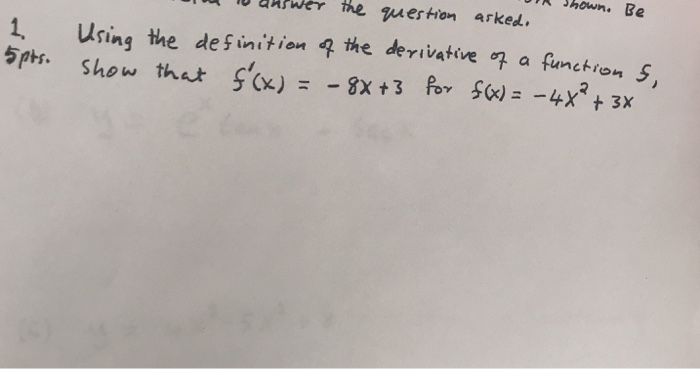 to answer the question asked.
shown. Be
1. Using the definition of the derivative of a function f,
5pts. show that f'(x) = -8x+3 for f(x) = -4x² + 3x